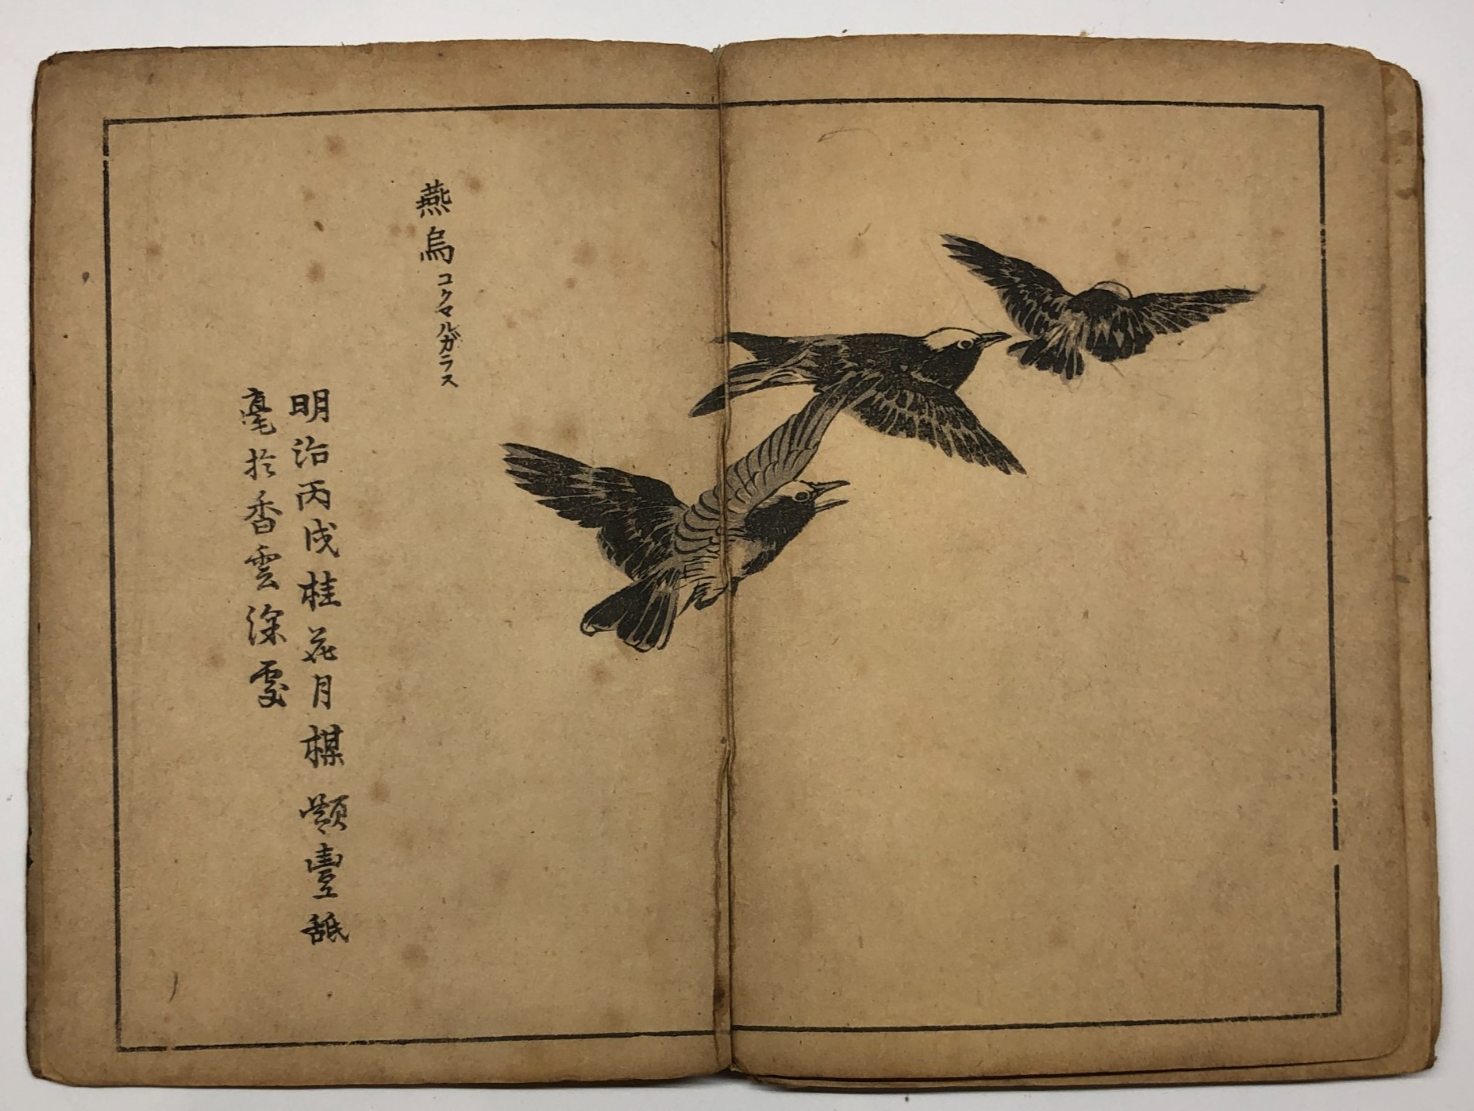 燕烏コクマルガラス
明治丙戌桂花月楳嶺豊舐
毫於香雲深処